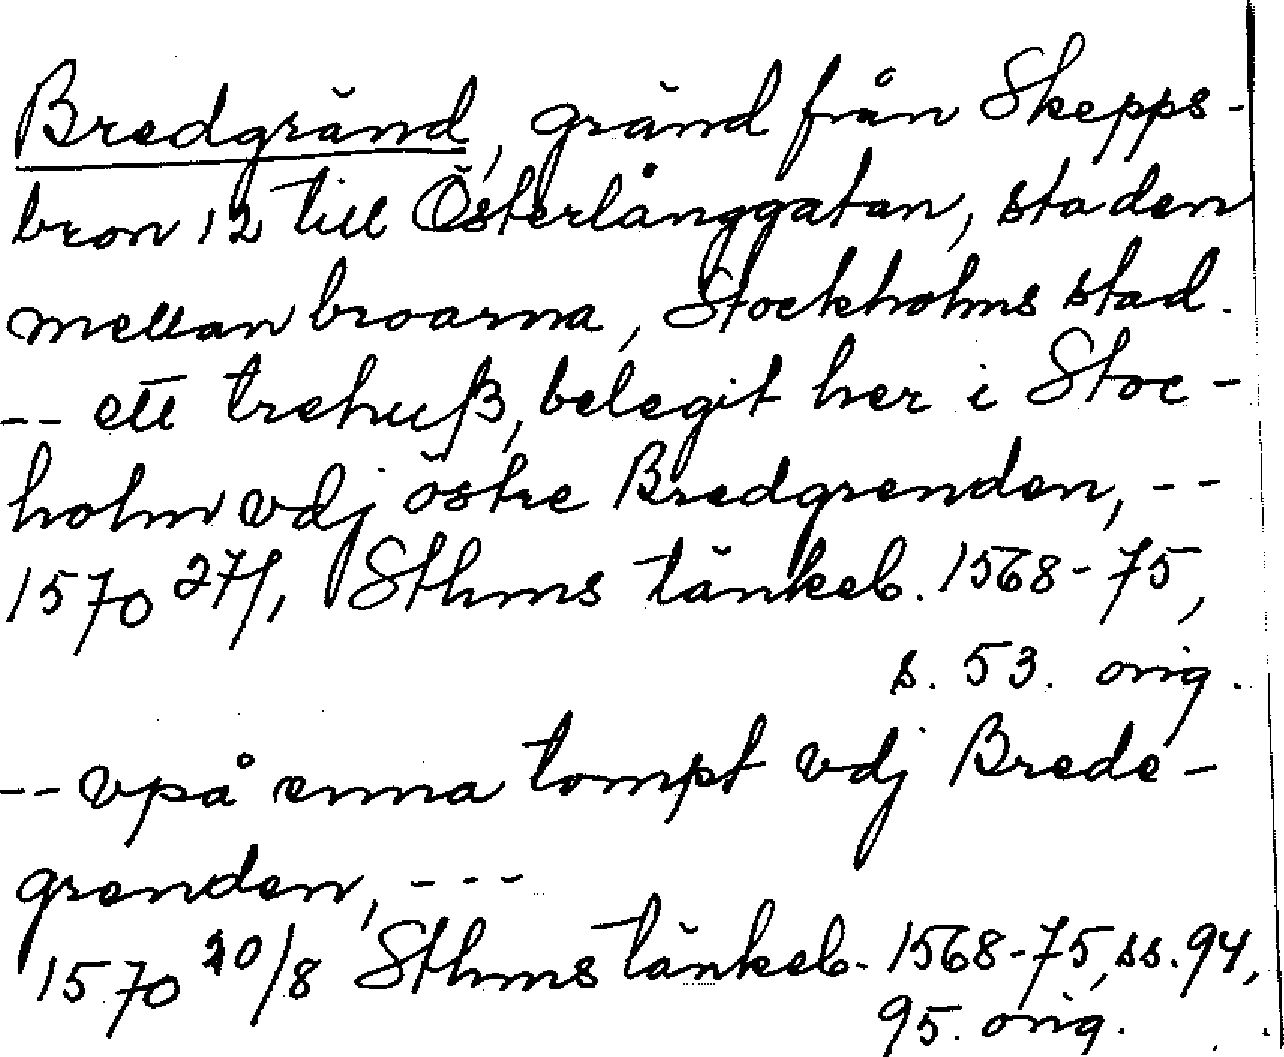 Bredgränd, gränd från Skepps-
bron 12 till Österlånggatan, staden
mellan broarna, Stockholms stad.
-- ett trehuß, belegit her i Stoc-
holm vdj östre Bredgrenden, --
1570 27/1, Sthms tänkeb. 1568-75,
s. 53. orig.
-- vpå enna tompt vdj Brede-
grenden, ---
1570 20/8 Sthms tänkeb. 1568-75, ss. 94,
95. orig.